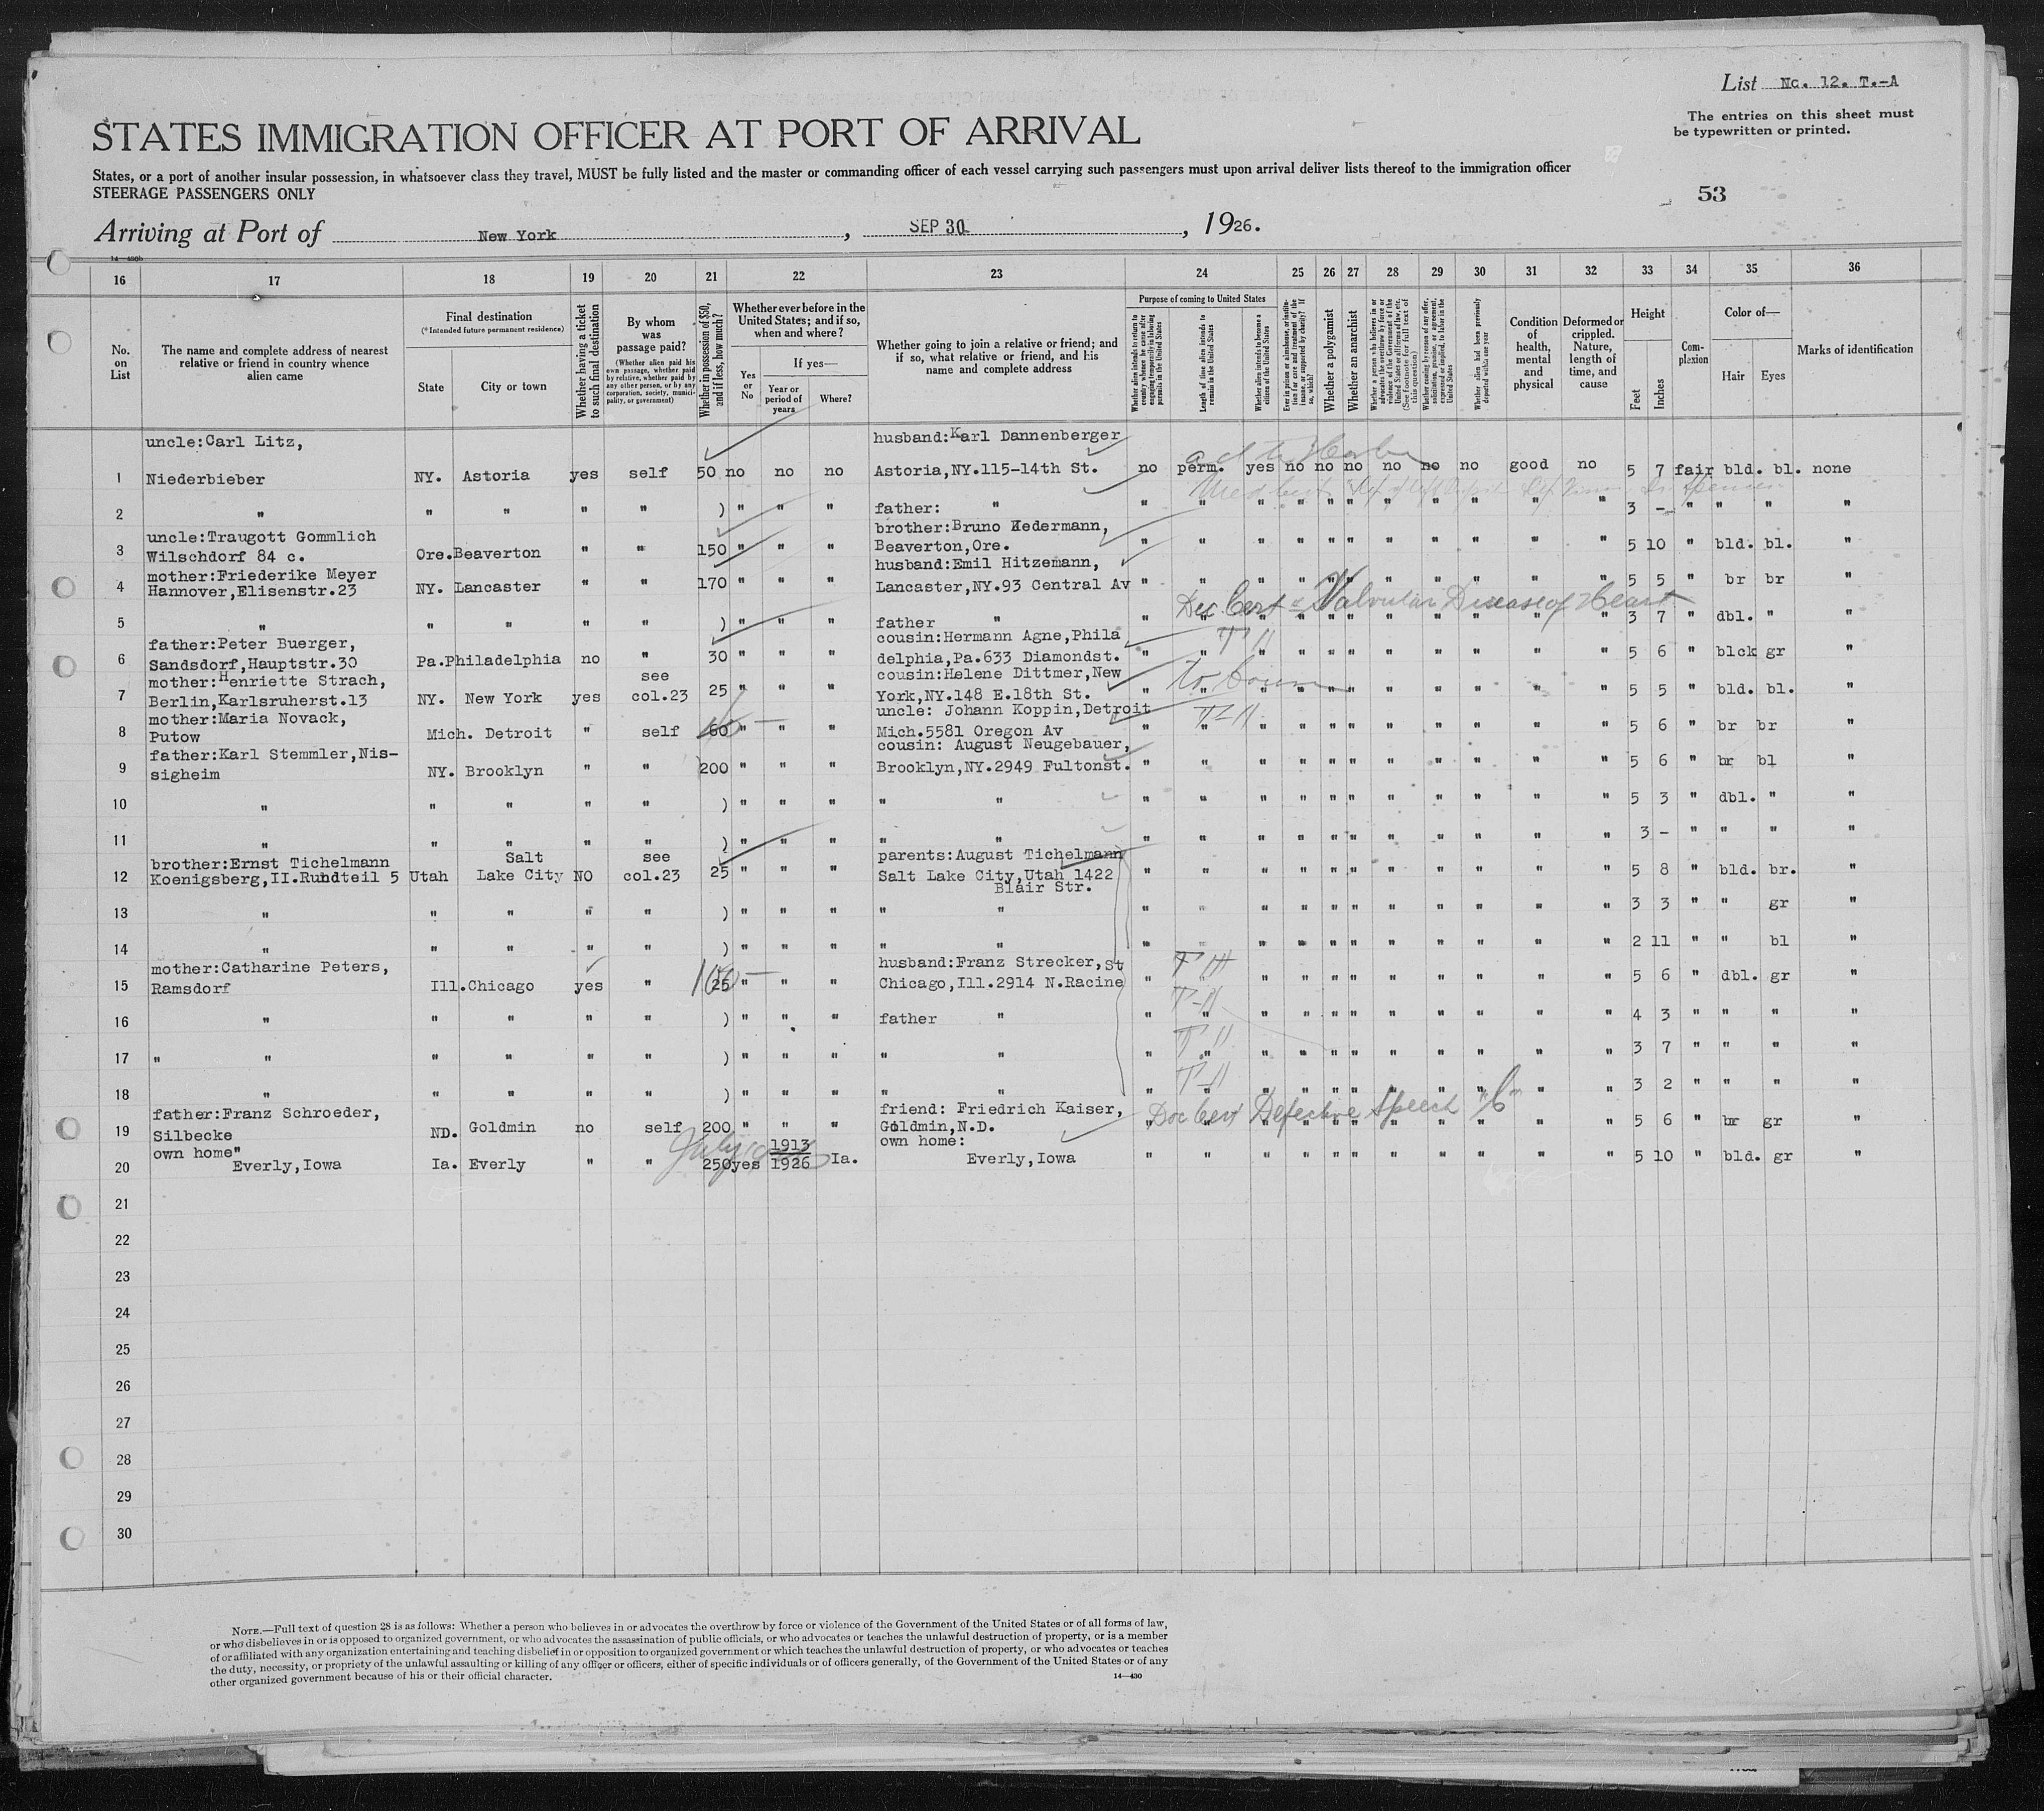 List No. 12. T.-A
The entries on this sheet must
be typewritten or printed.
STATES IMMIGRATION OFFICER AT PORT OF ARRIVAL
States, or a port of another insular possession, in whatsoever class they travel, MUST be fully listed and the master or commanding officer of each vessel carrying such passengers must upon arrival deliver lists thereof to the immigration officer
STEERAGE PASSENGERS ONLY
53
Arriving at Port of New York, SEP 30, 1926.
14—430b
16 17 18 19 20 21 22 23 24 25 26 27 28 29 30 31 32 33 34 35 36
No. on List
The name and complete address of nearest relative or friend in country whence alien came
Final destination
(*Intended future permanent residence)
State
City or town
Whether having a ticket to such final destination
By whom was passage paid?
(Whether alien paid his own passage, whether paid by relative, whether paid by any other person, or by any corporation, society, municipality, or government)
Whether in possession of $50, and if less, how much?
Whether ever before in the United States; and if so, when and where?
Yes or No
If yes—
Year or period of years
Where?
Whether going to join a relative or friend; and if so, what relative or friend, and his name and complete address
Purpose of coming to United States
Whether alien intends to return to country whence he came after engaging temporarily in laboring pursuits in the United States
Length of time alien intends to remain in the United States
Whether alien intends to become a citizen of the United States
Ever in prison or almshouse, or institution for care and treatment of the insane, or supported by charity? If so, which?
Whether a polygamist
Whether an anarchist
Whether a person who believes in or advocates the overthrow by force or violence of the Government of the United States or all forms of law, etc. (See footnote for full text of this question)
Whether coming by reason of any offer, solicitation, promise, or agreement, expressed or implied, to labor in the United States
Whether alien had been previously deported within one year
Condition of health, mental and physical
Deformed or crippled. Nature, length of time, and cause
Height
Feet
Inches
Com-plexion
Color of—
Hair
Eyes
Marks of identification
uncle:Carl Litz, husband:Karl Dannenberger
1 Niederbieber NY. Astoria yes self 50 no no no Astoria,NY.115-14th St. no perm. yes no no no no no no good no 5 7 fair bld. bl. none
2 " " " " " ) " " " father: " " " " " " " " " " " " 3 - " " " "
uncle:Traugott Gommlich brother:Bruno Hedermann,
3 Wilschdorf 84 c. Ore.Beaverton " " 150 " " " Beaverton,Ore. " " " " " " " " " " " 5 10 " bld. bl. "
mother:Friederike Meyer husband:Emil Hitzemann,
4 Hannover,Elisenstr.23 NY. Lancaster " " 170 " " " Lancaster,NY.93 Central Av " " " " " " " " " " " 5 5 " br br "
Doc Cert Valvular Disease of Heart
5 " " " " " ) " " " father " " " " " " " " " " " " 3 7 " dbl. " "
father:Peter Buerger, cousin:Hermann Agne,Phila
6 Sandsdorf,Hauptstr.30 Pa.Philadelphia no " 30 " " " delphia,Pa.633 Diamondst. " " " " " " " " " " 5 6 " blck gr "
mother:Henriette Strach, see cousin:Helene Dittmer,New
7 Berlin,Karlsruherst.13 NY. New York yes col.23 25 " " " York,NY.148 E.18th St. " " " " " " " " " " " 5 5 " bld. bl. "
mother:Maria Novack, uncle: Johann Koppin,Detroit
8 Putow Mich. Detroit " self 60 " " " Mich.5581 Oregon Av " " " " " " " " " " " 5 6 " br br "
father:Karl Stemmler,Nis- cousin: August Neugebauer,
9 sigheim NY. Brooklyn " " 200 " " " Brooklyn,NY.2949 Fultonst. " " " " " " " " " " " 5 6 " br bl "
10 " " " " " ) " " " " " " " " " " " " " " " " " 5 3 " dbl. " "
11 " " " " " ) " " " " " " " " " " " " " " " " 3 - " " " "
brother:Ernst Tichelmann Salt see parents:August Tichelmann
12 Koenigsberg,II.Rundteil 5 Utah Lake City NO col.23 25 " " " Salt Lake City,Utah 1422 " " " " " " " " " " " 5 8 " bld. br. "
Blair Str.
13 " " " " " ) " " " " " " " " " " " " " " " " 3 3 " " gr "
14 " " " " " ) " " " " " " " " " " " " " " " " 2 11 " " bl "
mother:Catharine Peters, husband:Franz Strecker, St
15 Ramsdorf Ill.Chicago yes " 25 " " " Chicago,Ill.2914 N.Racine " " " " " " " " " " " 5 6 " dbl. gr "
16 " " " " " ) " " " father " " " " " " " " " " " " 4 3 " " " "
17 " " " " " " ) " " " " " " " " " " " " " " " " 3 7 " " " "
18 " " " " " ) " " " " " " " " " " " " " " " " 3 2 " " " "
father:Franz Schroeder, friend: Friedrich Kaiser, Doc Cert Defective Speech "C"
19 Silbecke ND. Goldmin no self 200 " " " Goldmin,N.D. " " " " " " " " " " " 5 6 " br gr "
own home" July 1913 own home:
20 Everly,Iowa Ia. Everly " " 250 yes 1926 Ia. Everly,Iowa " " " " " " " " " " " 5 10 " bld. gr "
21
22
23
24
25
26
27
28
29
30
NOTE.—Full text of question 28 is as follows: Whether a person who believes in or advocates the overthrow by force or violence of the Government of the United States or of all forms of law,
or who disbelieves in or is opposed to organized government, or who advocates the assassination of public officials, or who advocates or teaches the unlawful destruction of property, or is a member
of or affiliated with any organization entertaining and teaching disbelief in or opposition to organized government or which teaches the unlawful destruction of property, or who advocates or teaches
the duty, necessity, or propriety of the unlawful assaulting or killing of any officer or officers, either of specific individuals or of officers generally, of the Government of the United States or of any
other organized government because of his or their official character.
14—430